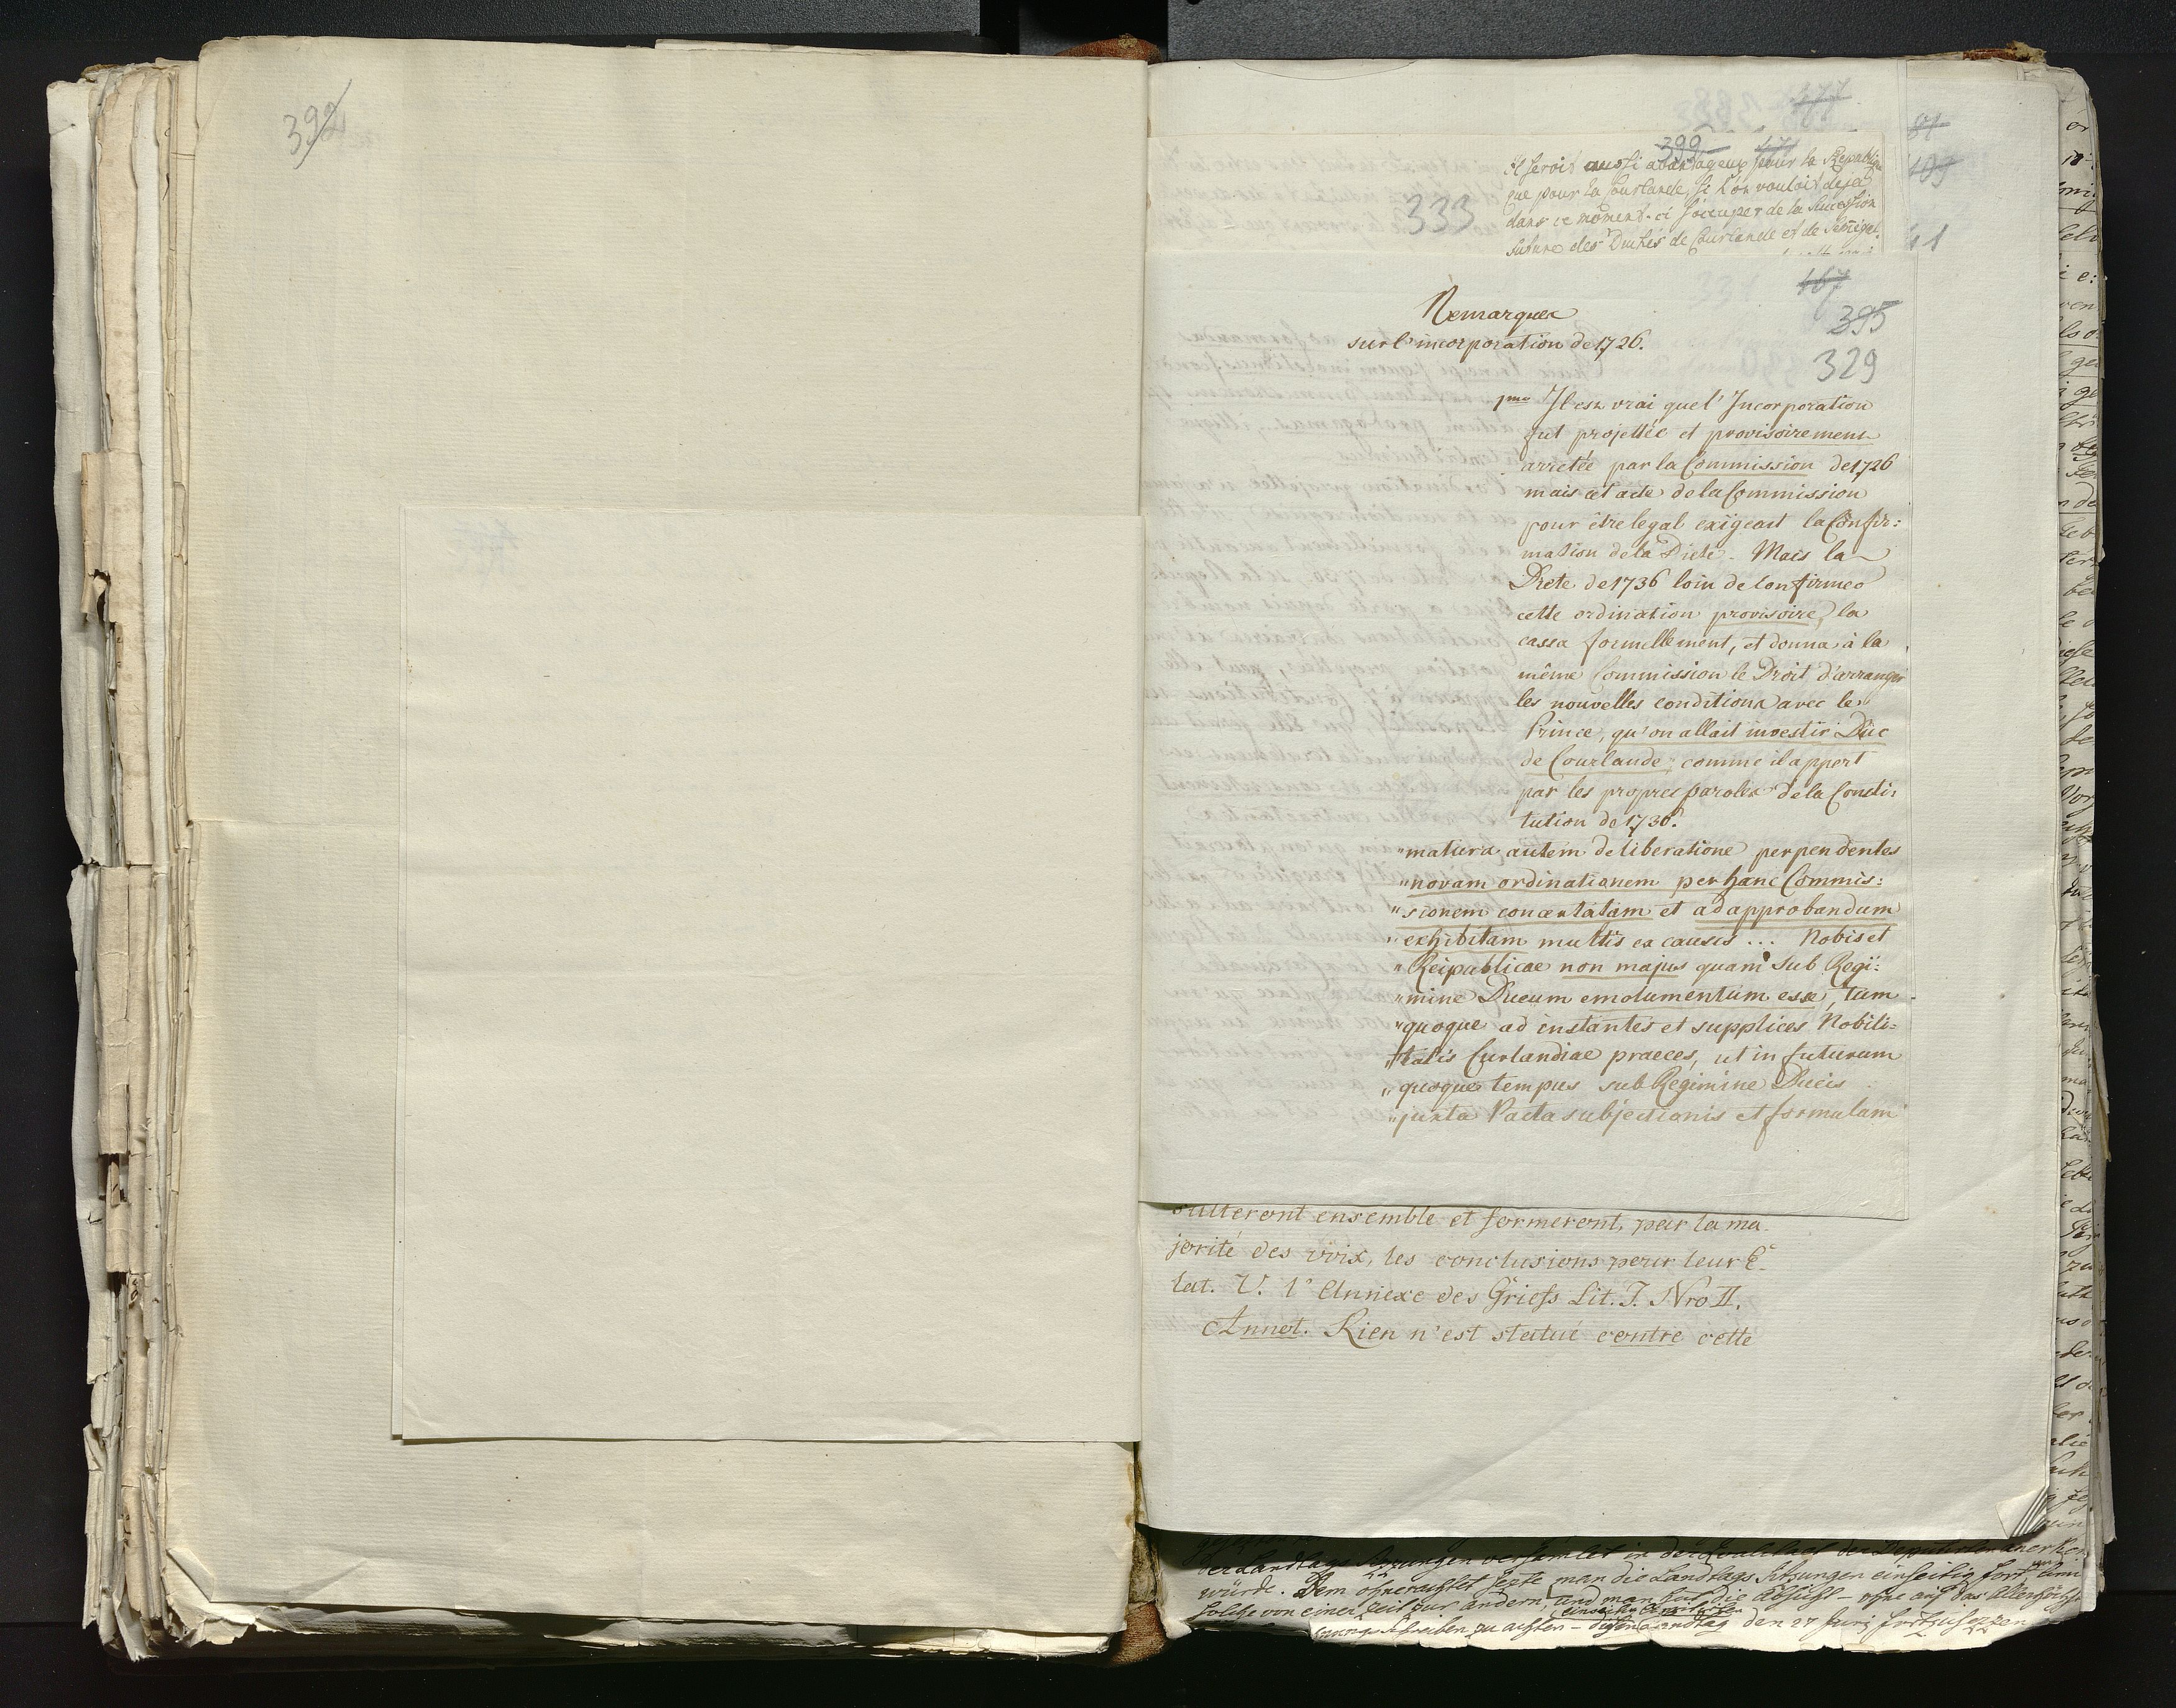 392
399 171
Il seroit aussi avantageux pour la Republique
que pour la Courlande, si l'on vouloit deja
dans ce moment-ci s'occuper de la Succession
future des Duchés de Courlande et de Semigal.
333
81
109
41
167
395
329
Remarques
sur l'incorporation de 1726.
1mo Il est vrai que l'Incorporation
fut projettée et provisoirement
arretée par la Commission de 1726
mais cet acte de la Commission
pour être legal exigeait la Confir:
mation de la Diete. Mais la
Diete de 1736 loin de Confirmer
cette ordination provisoire, la
cassa formellement, et donna à la
même Commission le Droit d'arranger
les nouvelles conditions avec le
Prince, qu'on allait investir Duc
de Courlande; comme il appert
par les propres paroles de la Consti:
tution de 1736.
"matura autem deliberatione perpendentes
"novam ordinationem per hanc Commis:
"sionem concertatam et ad approbandum
"exhibitam multis ex causis ... Nobis et
"Reipublicae non majus quam sub Regi:
"mine Ducum emolumentum esse, tum
"quoque ad instantes et supplices Nobili:
"tatis Curlandiae praeces, ut in futurum
"quoque tempus sub Regimine Ducis
"juxta Pacta subjectionis et formulam
sulteront ensemble et formeront, par la ma-
jorité des voix, les conclusions pour leur E-
tat. V. l'Annexe des Griefs Lit. J. Nro II.
Annot. Rien n'est statué contre cette
der Landtags Sitzungen versamlet in der der Deputirten
würde. Dem ohnerachtet sezte man die Landtags Sitzungen einseitig fort,
solche von einer Zeit zur andern, und man hat die Absicht - ohne auf das Allerhöchste
schreiben zu achten - diesen Landtag den 27 Junij fortzusezzen